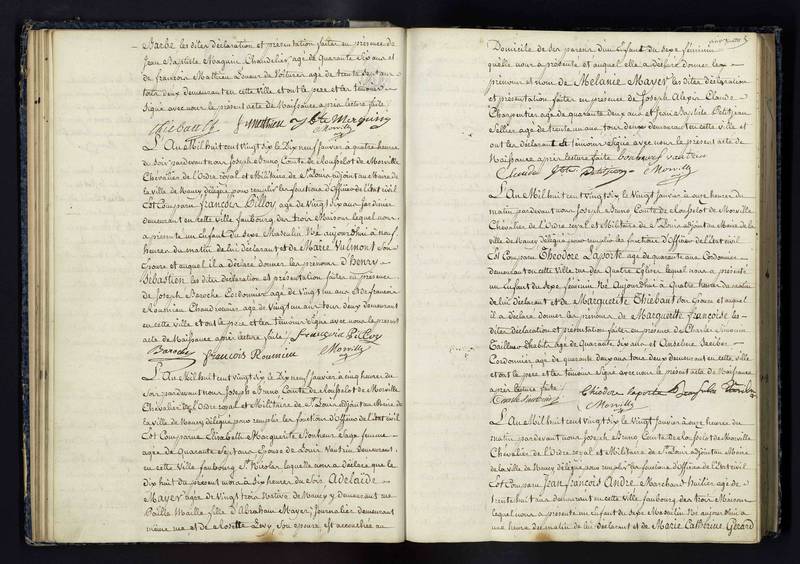 Barbe les dites déclaration et présentation faites en présence de
Jean Baptiste Hoaquin Chandelier agé de Quarante Six ans et
de françois Mathieu Loueur de Voitures agé de trente Sept ans
tous deux demeurant en cette Ville et ont le pere et les témoins
Signé avec nous le présent acte de Naissance après lecture faite
thiebault f. Mathieu
Morvilly
L'An Mil huit cent vingt six le Dix neuf Janvier à quatre heures
du Soir pardevant nous Joseph Bruno Comte de Morville
Chevalier de l'Ordre royal et Militaire de St Louis adjoint au Maire de
la ville de Nancy délégué pour remplir les fonctions d'Officier de l'Etat civil
Est Comparu françois Pilloy agé de Vingt Six ans Jardinier
demeurant en cette ville faubourg des trois Maisons lequel nous
a présenté un Enfant du Sexe Masculin Né aujourd'hui à neuf
heures du matin de lui déclarant et de Marie Vulmont Son
Epouse et auquel il a déclaré donner les prénoms d'henry
Sébastien les dites déclaration et présentation faites en présence
de Joseph Baroche Cordonnier agé de Vingt un ans et de françois
Roumieu Chaudronnier agé de Vingt un ans tous deux demeurant
en cette ville et ont le pere et les témoins Signé avec nous le présent
acte de Naissance après lecture faite françois Pilloy
Baroche françois Roumieu Morvilly
L'An Mil huit cent vingt six le Dix neuf Janvier à cinq heures du
Soir pardevant nous Joseph Bruno Comte de Morville
Chevalier de l'Ordre royal et Militaire de St Louis adjoint au Maire de
la ville de Nancy délégué pour remplir les fonctions d'Officier de l'Etat civil
Est Comparue Elisabeth Marguerite Bonheur Sage femme
agée de Quarante Sept ans Epouse de Louis Vautrin demeurant
en cette Ville faubourg St Nicolas laquelle nous a déclaré que le
Dix huit du présent mois à Six heures du Soir Adélaïde
Mayer agée de Vingt trois Native de Nancy y demeurant rue
Paille Maille fille d'Abraham Mayer Journalier demeurant
même rue et de Rosette Levy Son épouse est accouchée au
Domicile de ses parens d'un Enfant du Sexe féminin
qu'elle nous a présenté et auquel elle a déclaré donner les
prénoms et nom de Mélanie Mayer les dites déclaration
et présentation faites en présence de Joseph Alexis Claude
Charpentier agé de quarante deux ans et Jean Baptiste Petitjean
Sellier agé de trente un ans tous deux demeurant en cette ville et
ont les déclarant et témoins Signé avec nous le présent acte de
Naissance après lecture faite bonheur f vautrin
Claude Jbte Petitjean Morvilly
L'An Mil huit cent Vingt Six le Vingt Janvier à onze heures du
matin pardevant nous Joseph Bruno Comte de Morville
Chevalier de l'Ordre royal et Militaire de St Louis adjoint au Maire de la
ville de Nancy délégué pour remplir les fonctions d'Officier de l'Etat civil
Est Comparu Théodore Laporte agé de quarante ans Cordonnier
demeurant en cette Ville rue des Quatre Eglises lequel nous a présenté
un Enfant du Sexe féminin Né Aujourd'hui à quatre heures du matin
de lui déclarant et de Marguerite Thiebaut Son Epouse et auquel
il a déclaré donner les prénoms de Marguerite Françoise les
dites déclaration et présentation faites en présence de Charles
Tailleur d'habits agé de Quarante Six ans et Anselme
Cordonnier agé de Quarante deux ans tous deux demeurant en cette ville
et ont le pere et les témoins Signé avec nous le présent acte de Naissance
après lecture faite
Théodore laporte
Morvilly
L'An Mil huit cent Vingt Six le Vingt Janvier à onze heures du
matin pardevant nous Joseph Bruno Comte de Morville
Chevalier de l'Ordre royal et Militaire de St Louis adjoint au Maire
de la ville de Nancy délégué pour remplir les fonctions d'Officier de l'Etat civil
Est Comparu Jean françois André Marchand huilier agé de
trente huit ans demeurant en cette Ville faubourg des trois Maisons
lequel nous a présenté un Enfant du Sexe Masculin Né aujourd'hui à
une heure du matin de lui déclarant et de Marie Catherine Gérard